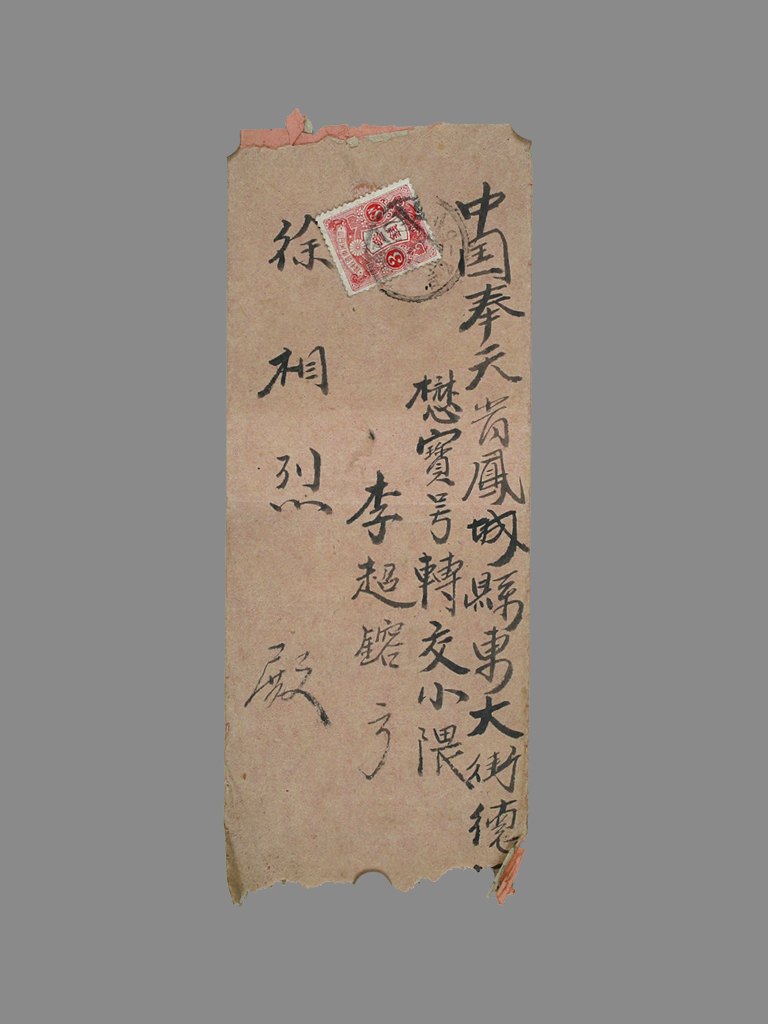 中国奉天省鳳城縣東大街德
懋寶号轉交小隈
李超鎔方
徐相烈殿